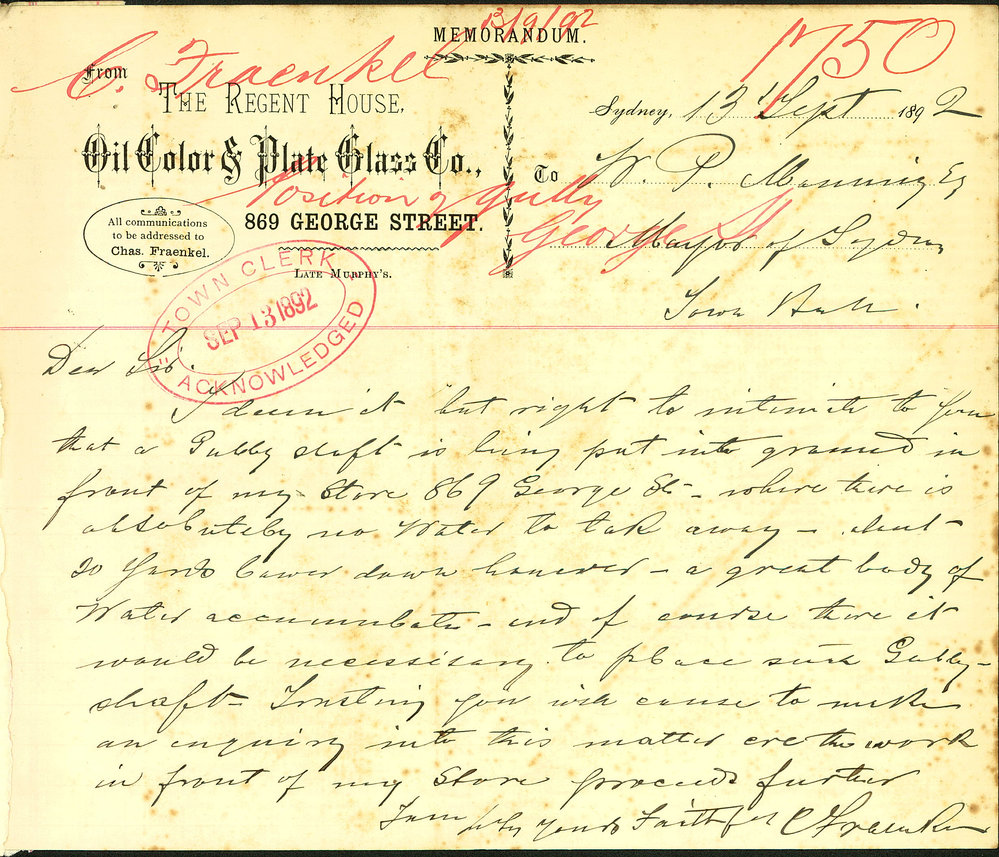 MEMORANDUM.
13/9/92
1750
C. Fraenkel
From
THE REGENT HOUSE,
Oil Color & Plate Glass Co.,
Position of gully
George St
869 GEORGE STREET.
LATE MURPHY'S.
All communications
to be addressed to
Chas. Fraenkel.
TOWN CLERK
SEP 13 1892
ACKNOWLEDGED
Sydney, 13 Sept 1892
To W. P. Manning Esq
Mayor of Sydney
Town Hall.
Dear Sir.
I deem it but right to intimate to you
that a Gully shaft is being put into ground in
front of my Store 869 George St - where there is
absolutely no Water to take away - about
20 Yards lower down however - a great body of
Water accumulates - and of course there it
would be necessisary to place such Gully-
shaft - Trusting you will cause to make
an inquiry into this matter ere the work
in front of my Store proceeds further
I am Yours Faithful C Fraenkel